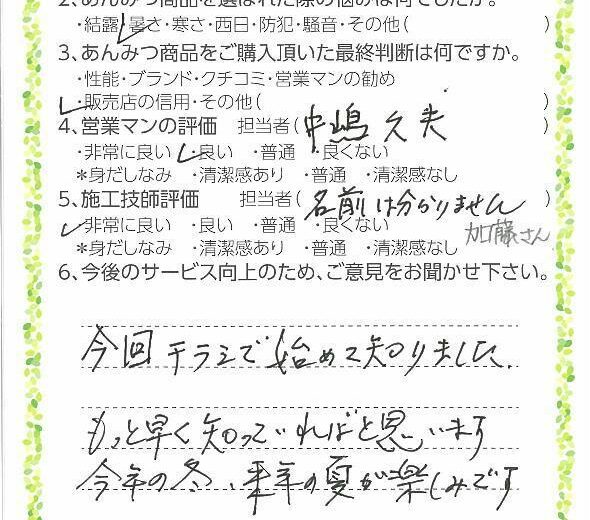 2、あんみつ商品を選ばれた際の悩みは何でしたか。
・結露・暑さ・寒さ・西日・防犯・騒音・その他( )
3、あんみつ商品をご購入頂いた最終判断は何ですか。
・性能・ブランド・クチコミ・営業マンの勧め
・販売店の信用・その他( )
4、営業マンの評価 担当者(中嶋久夫 )
・非常に良い ・良い ・普通 ・良くない
*身だしなみ ・清潔感あり ・普通 ・清潔感なし
5、施工技師評価 担当者(名前は分かりません )
・非常に良い ・良い ・普通 ・良くない 加藤さん
*身だしなみ ・清潔感あり ・普通 ・清潔感なし
6、今後のサービス向上のため、ご意見をお聞かせ下さい。
今回チラシで始めて知りました.
もっと早く知っていればと思います
今年の冬、来年の夏が楽しみです